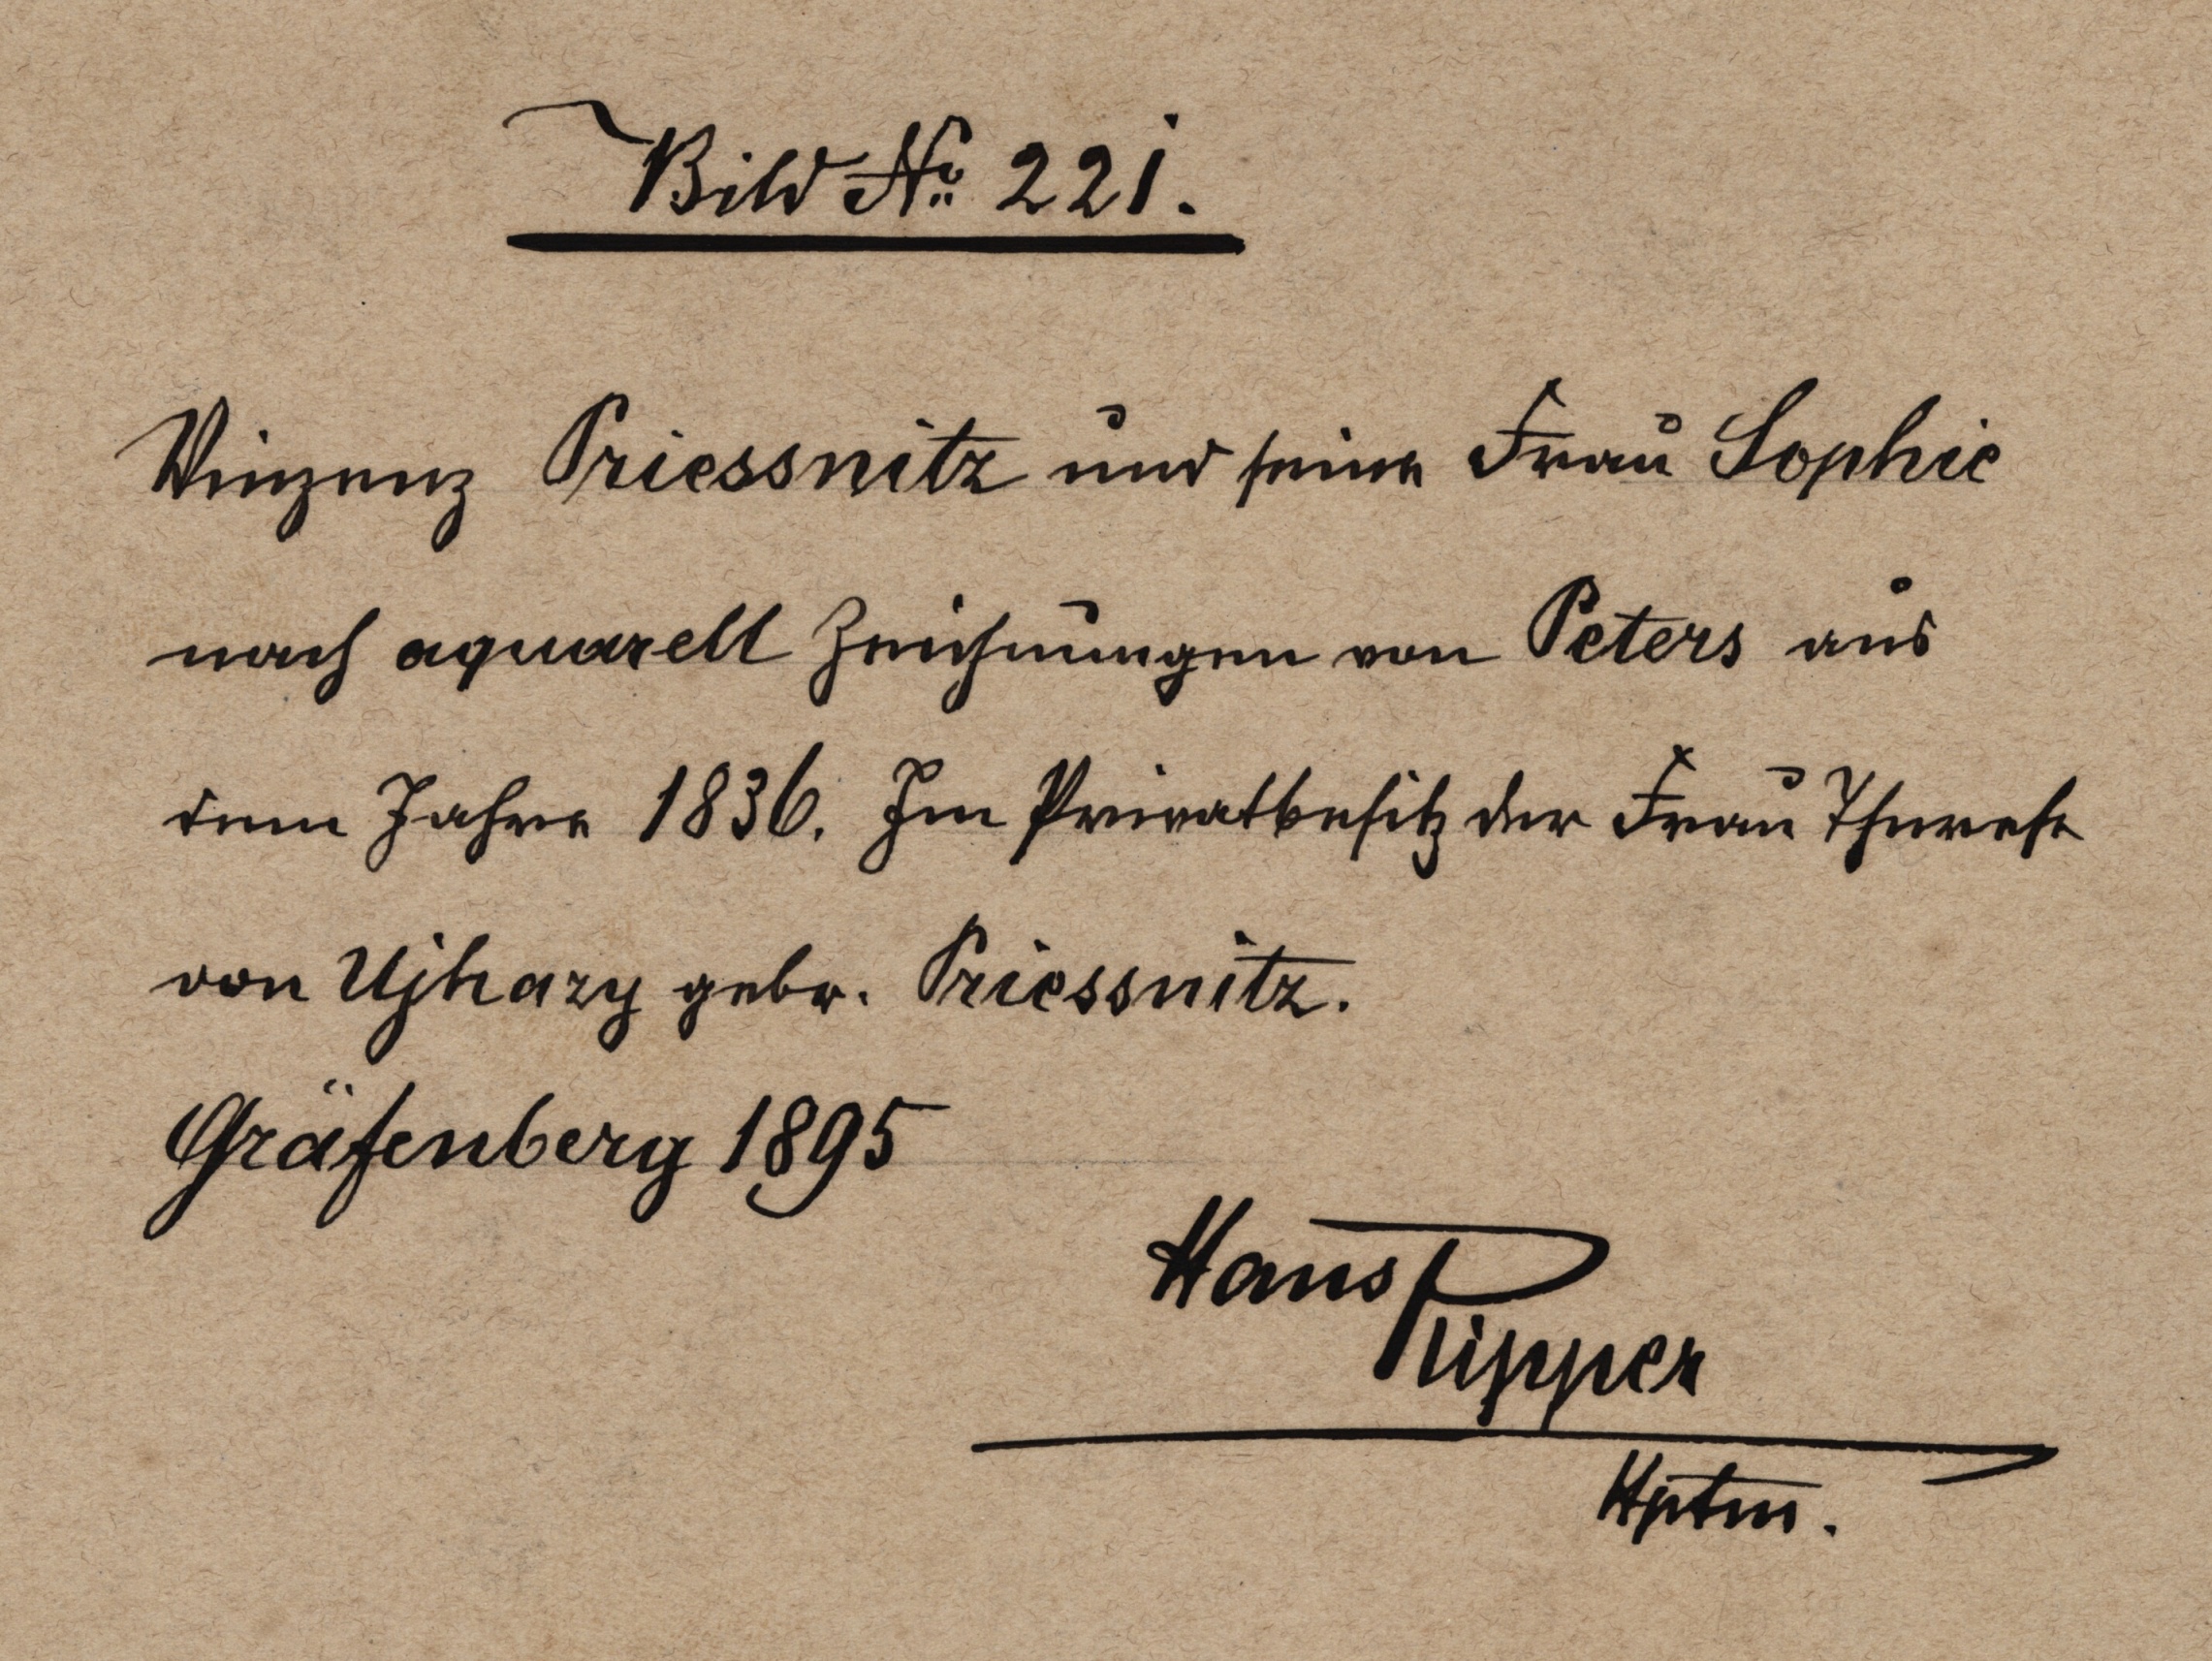 Bild No. 221.
Vinzenz Priessnitz und seine Frau Sophie
nach aquarell Zeichnungen von Peters aus
dem Jahre 1836. Im Privatbesitz der Frau Therese
von Ujhazy gebr. Priessnitz.
Gräfenberg 1895
Hans Ripper
Hptm.